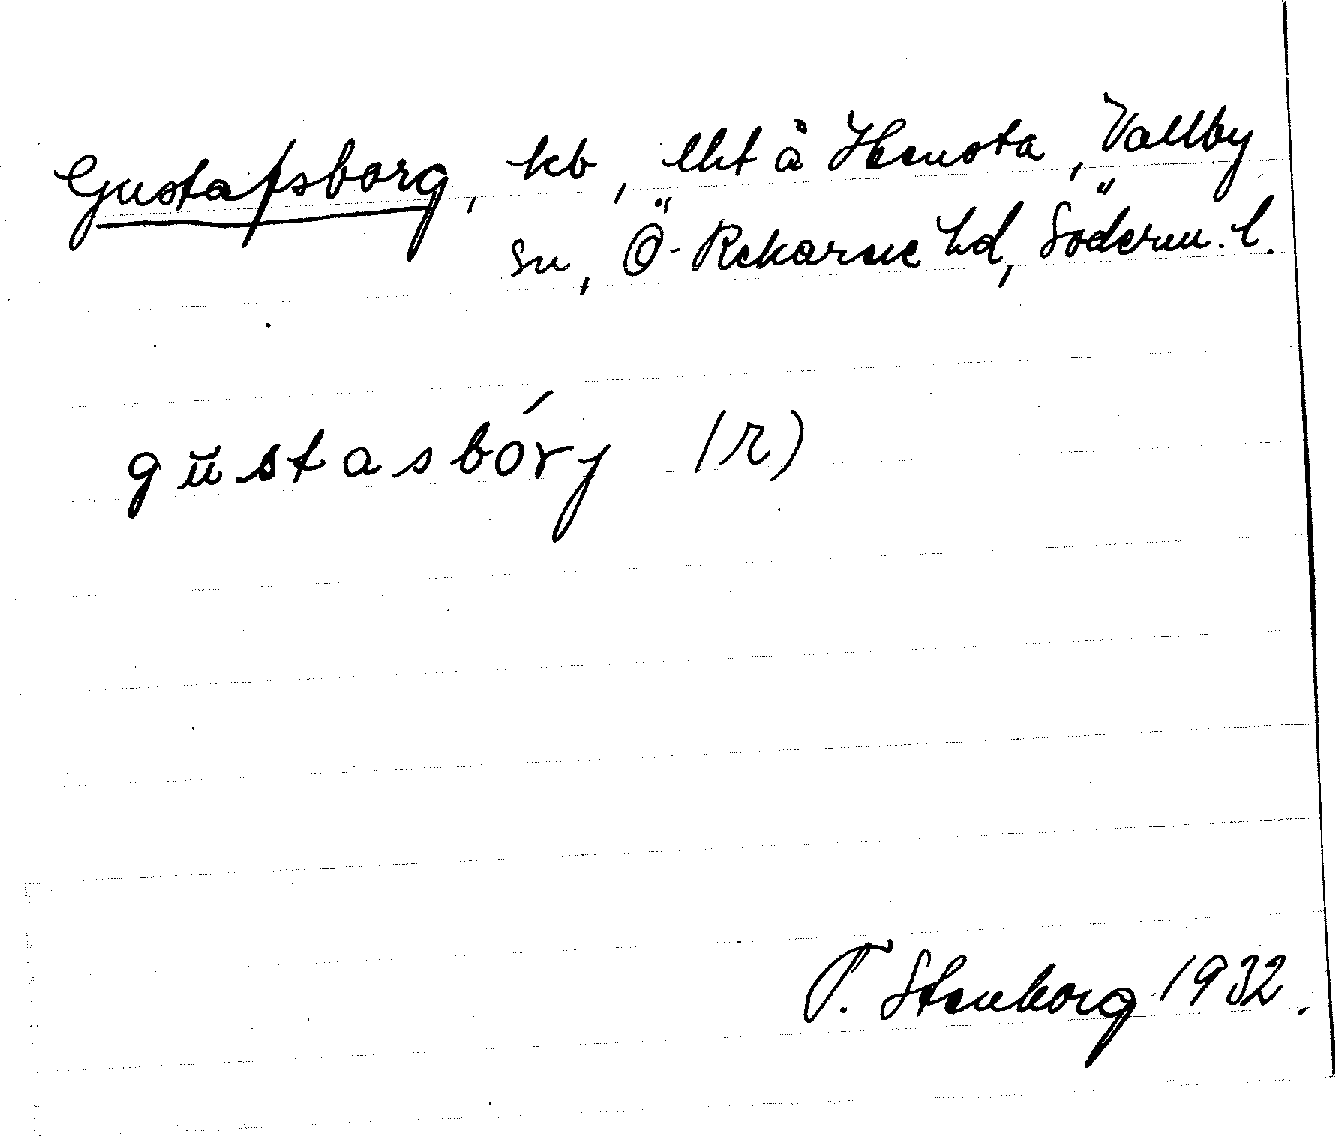 Gustafsborg, kb, lht å Stensta, Vallby
sn, Ö-Rekarne hd, Söderm. l.
gūstasbórj (r)
T. Stenborg 1932.